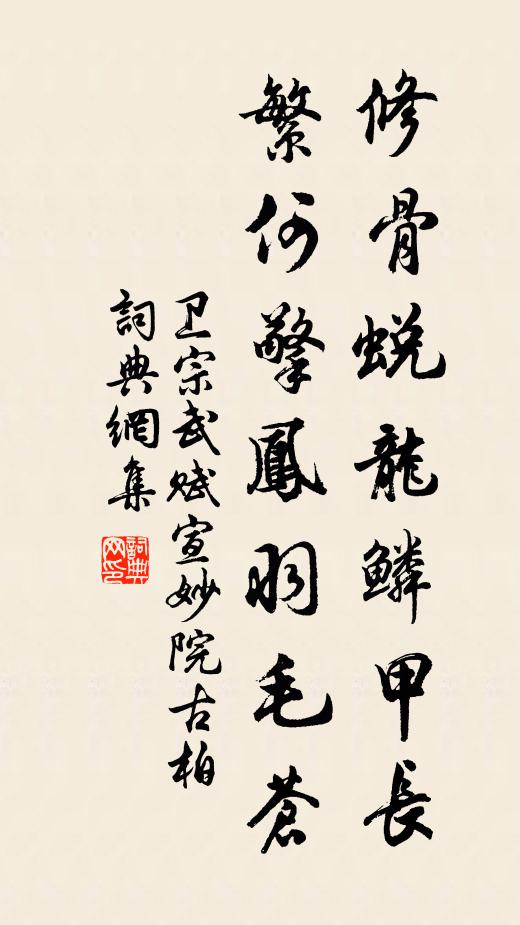 修骨蜕龍鱗甲長
繁何擎鳳羽毛蒼
卫宗武赋宣妙院古柏
詞典網集
詞典网印